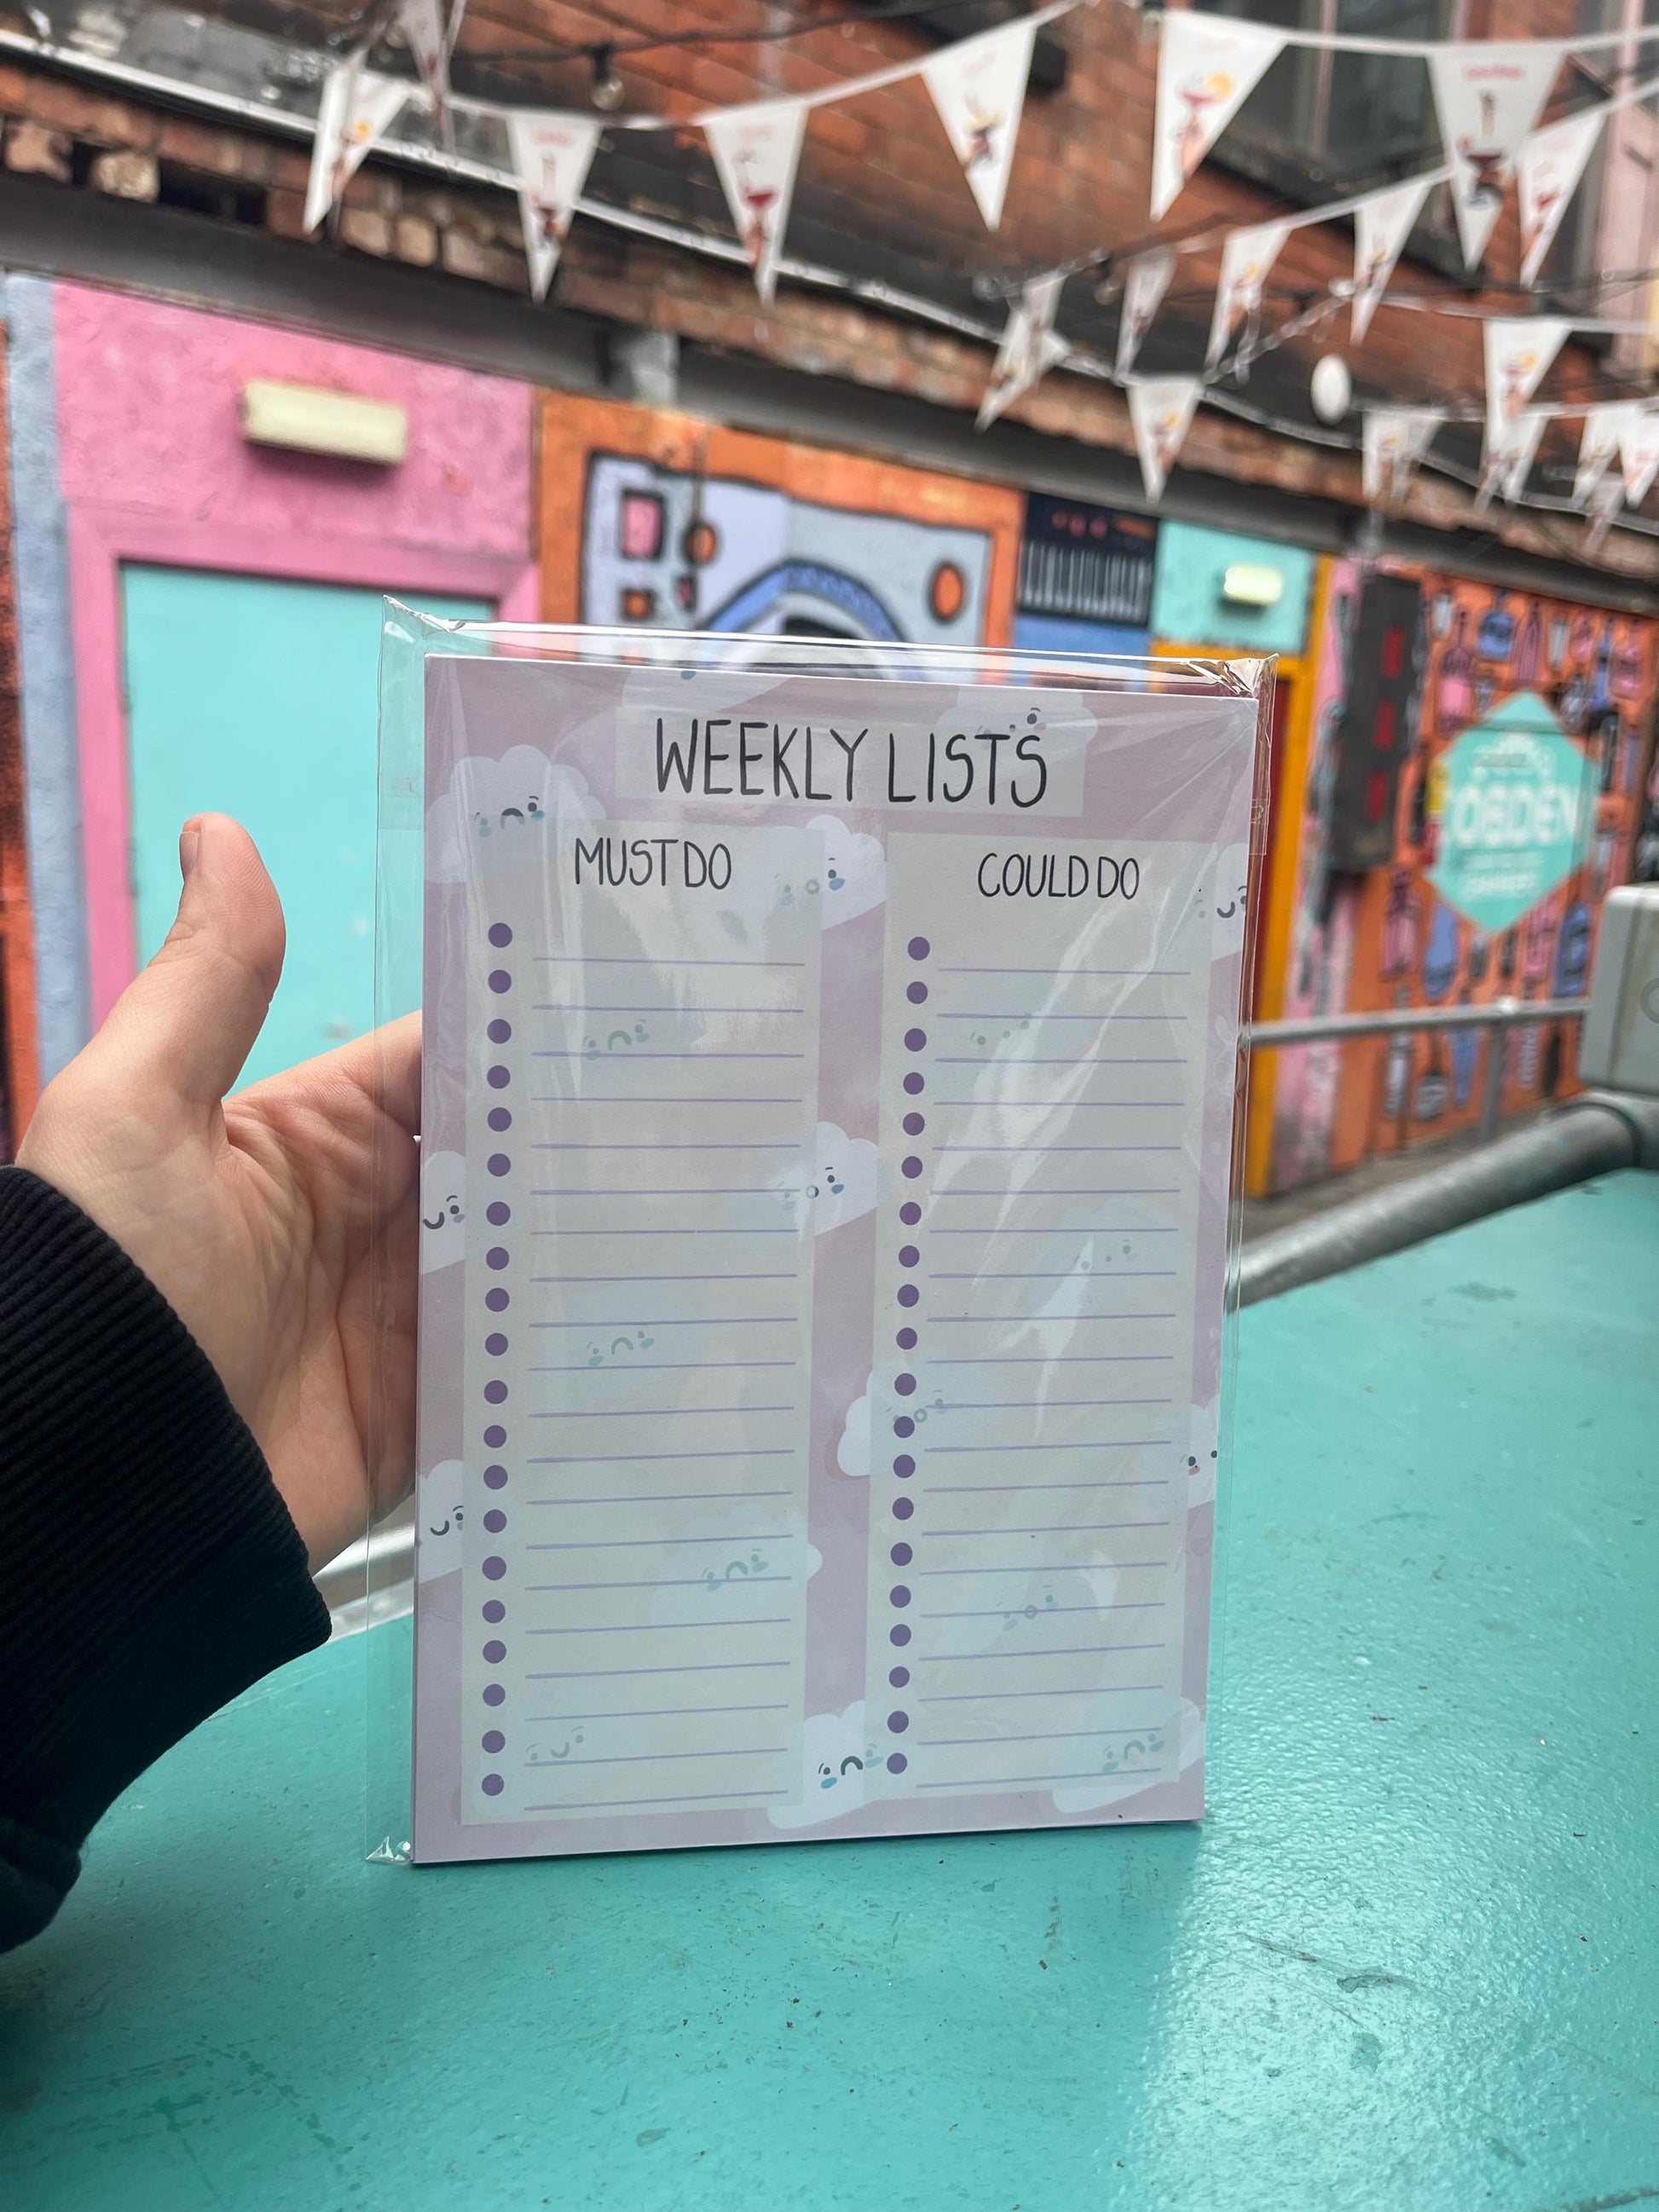 WEEKLY LISTS
MUST DO
COULD DO
OGDEN